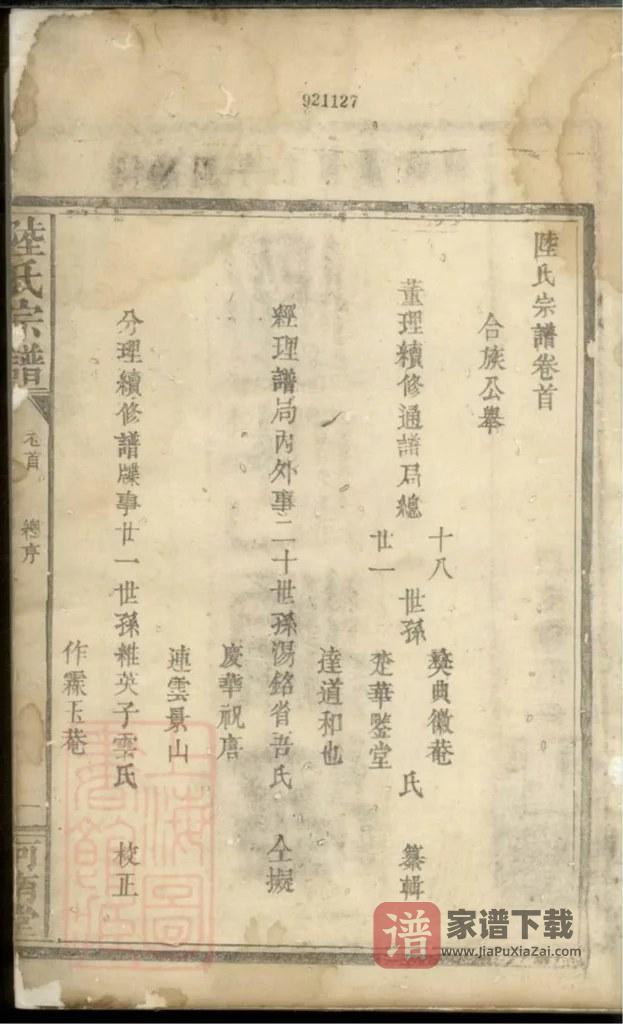 921127
陸氏宗譜卷首
合族公舉
十八
董理續修通譜局總 世孫 氏 纂輯
廿一
奠典徽菴
楚華鑒堂
達道和也
經理譜局內外事二十世孫湯銘省吾氏 仝擬
慶華祝唐
連雲景山
分理續修譜牒事廿一世孫維英子雲氏 校正
作霖玉菴
陸氏宗譜
卷首 總序
一
上海圖書館藏
譜 家谱下载
www.JiaPuXiaZai.com